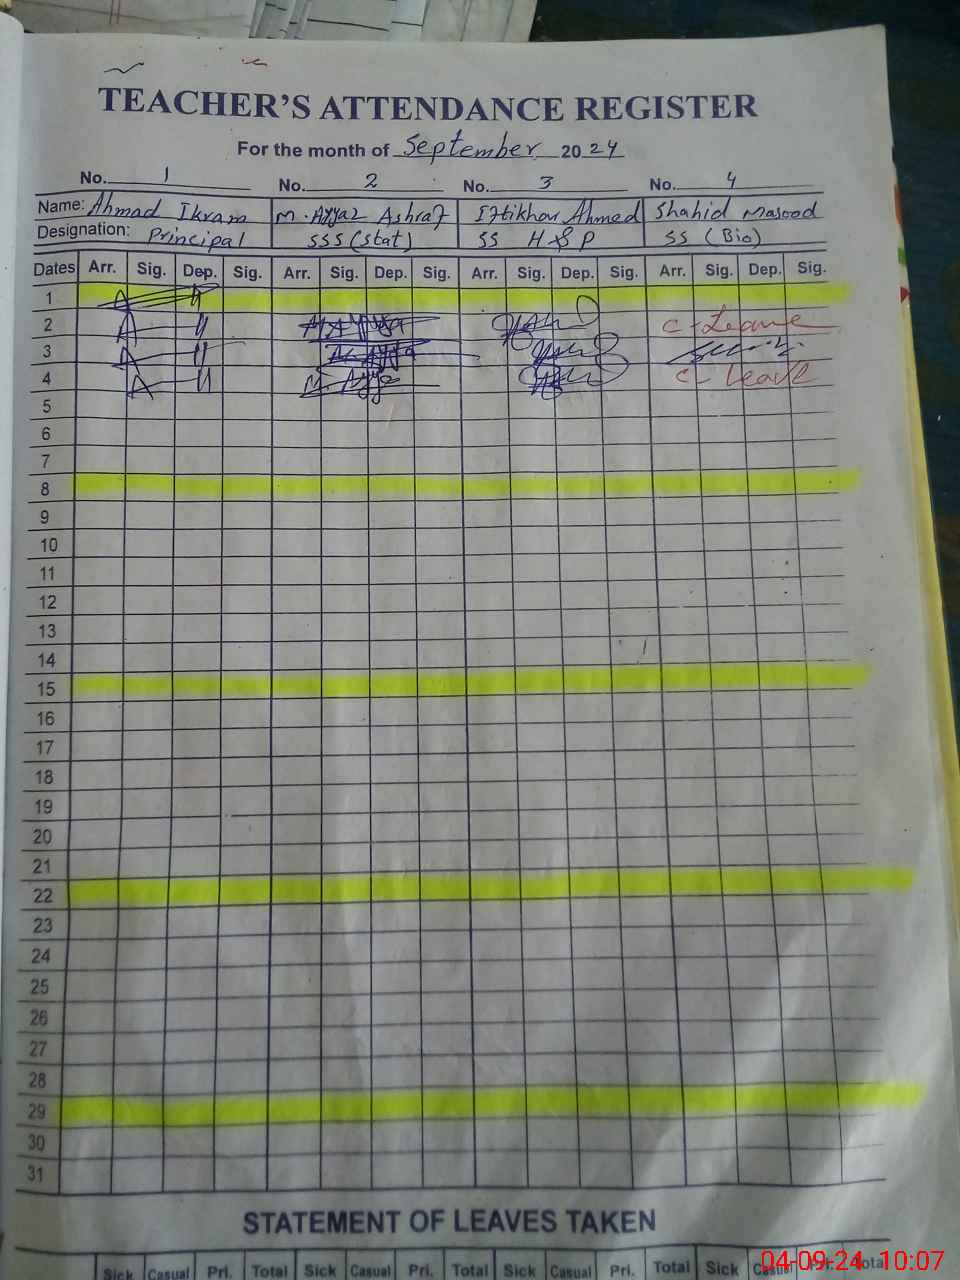 TEACHER'S ATTENDANCE REGISTER
For the month of September 2024
No. 1 No. 2 No. 3 No. 4
Name: Ahmad Ikram M. Ayyaz Ashraf Iftikhar Ahmed Shahid Masood
Designation: Principal SSS (Stat) SS H&P SS (Bio)
Dates Arr. Sig. Dep. Sig. Arr. Sig. Dep. Sig. Arr. Sig. Dep. Sig. Arr. Sig. Dep. Sig.
1
2 C-Leave
3
4 C-Leave
5
6
7
8
9
10
11
12
13
14
15
16
17
18
19
20
21
22
23
24
25
26
27
28
29
30
31
STATEMENT OF LEAVES TAKEN
Sick Casual Pri. Total Sick Casual Pri. Total Sick Casual Pri. Total Sick Casual Pri. Total
04-09-24 10:07